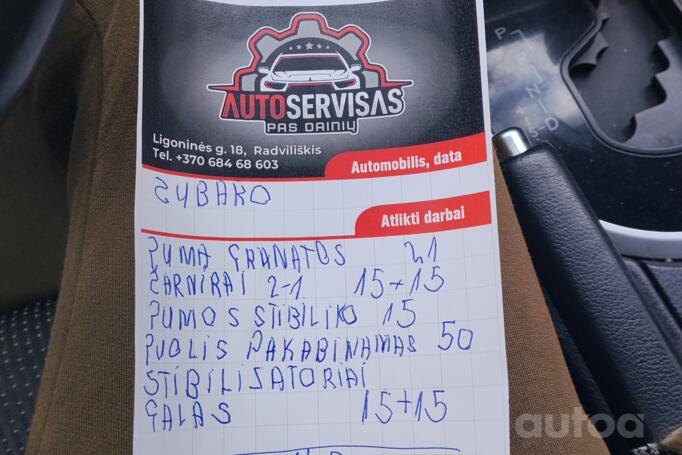 AUTOSERVISAS
PAS DAINIŲ
Ligoninės g. 18, Radviliškis
Tel. +370 684 68 603
Automobilis, data
SUBAKO
Atlikti darbai
GUMA GRANATOS 21
ŠARNIRAI 2-1 15+15
GUMOS STIBILIKO 15
GUOLIS PAKABINAMAS 50
STIBILIZATORIAI
GALAS 15+15
autoa
P
R
N
D
+
S
-